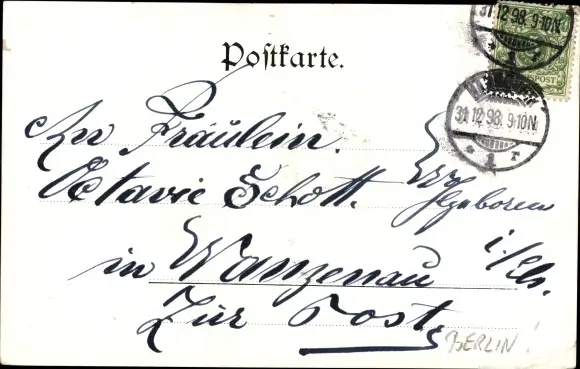 31 12 98. 9-10N
* 1 r
POST
Postkarte.
31 12 98. 9-10N
* 1 r
An Fräulein.
Octavie Schott. Wohlgeboren
in Wanzenau i/Els.
Zur Post
BERLIN!